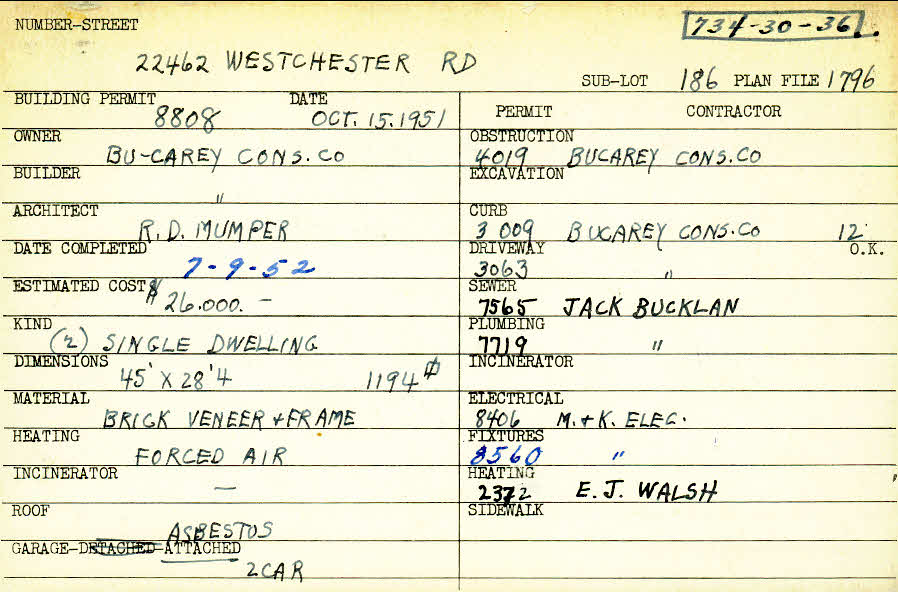 NUMBER-STREET
734-30-36.
22462 WESTCHESTER RD
SUB-LOT 186 PLAN FILE 1796
BUILDING PERMIT DATE
8808 OCT. 15. 1951
OWNER
BU-CAREY CONS. CO
BUILDER
"
ARCHITECT
R. D. MUMPER
DATE COMPLETED
7-9-52
ESTIMATED COST
$ 26.000. —
KIND
(2) SINGLE DWELLING
DIMENSIONS
45' X 28'4 1194 ⌀
MATERIAL
BRICK VENEER + FRAME
HEATING
FORCED AIR
INCINERATOR
—
ROOF
ASBESTOS
GARAGE-DETACHED-ATTACHED
2 CAR
PERMIT CONTRACTOR
OBSTRUCTION
4019 BUCAREY CONS. CO
EXCAVATION
CURB
3 009 BUCAREY CONS. CO 12'
DRIVEWAY O.K.
3063 "
SEWER
7565 JACK BUCKLAN
PLUMBING
7719 "
INCINERATOR
ELECTRICAL
8406 M. + K. ELEC.
FIXTURES
8560 "
HEATING
2372 E. J. WALSH
SIDEWALK